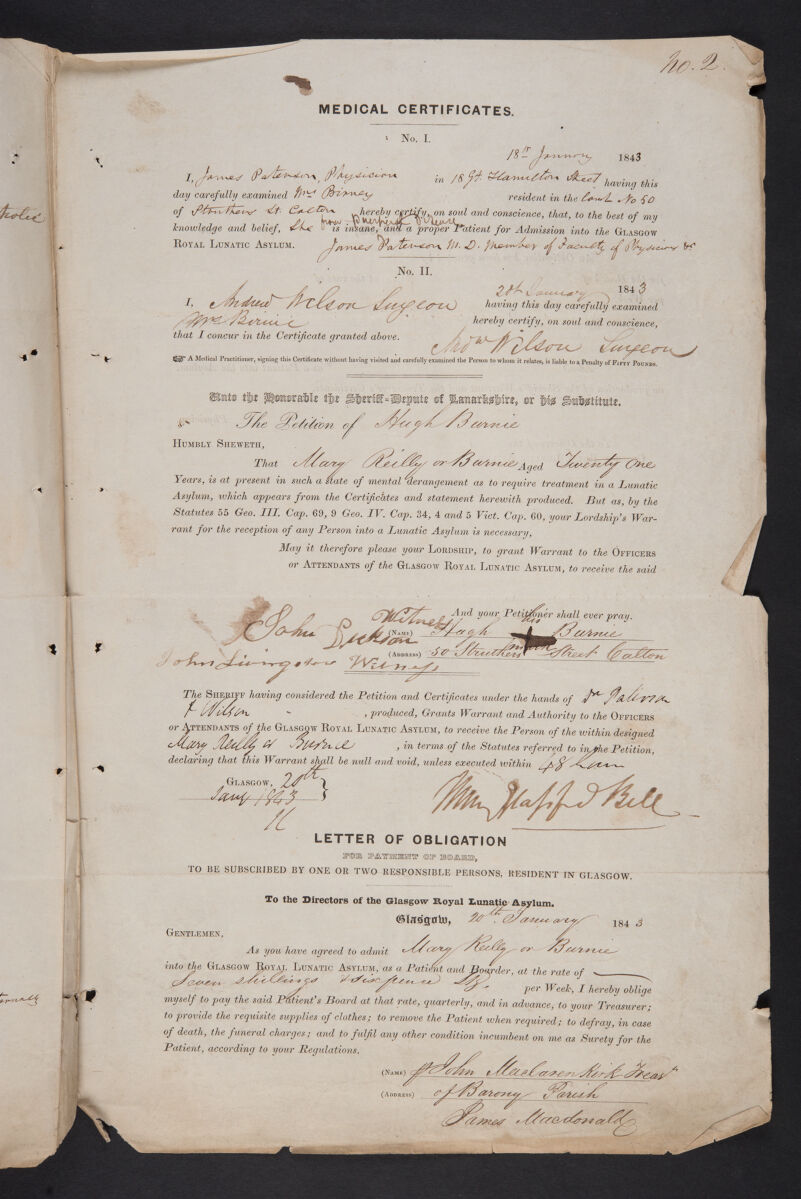 No. 2.
MEDICAL CERTIFICATES.
No. I.
18th January 1843
I, James Paterson, Physician in 18 Gt. Hamilton Street having this
day carefully examined Mrs Birney resident in the Land No 50
of Struthers St. Calton hereby certify, on soul and conscience, that, to the best of my
from Puerperal
knowledge and belief, She is insane, and a proper Patient for Admission into the GLASGOW
ROYAL LUNATIC ASYLUM. James Paterson M. D. Member of Faculty of Physicians &c
No. II.
20th January 1843
I, Andrew Wilson Surgeon having this day carefully examined
Mrs Birnie hereby certify, on soul and conscience,
that I concur in the Certificate granted above.
Andw Wilson Surgeon
☞ A Medical Practitioner, signing this Certificate without having visited and carefully examined the Person to whom it relates, is liable to a Penalty of FIFTY POUNDS.
Unto the Honorable the Sheriff-Depute of Lanarkshire, or his Substitute.
The Petition of Hugh Burnie
HUMBLY SHEWETH,
That Mary Reilly or Burnie Aged Twenty One
Years, is at present in such a state of mental derangement as to require treatment in a Lunatic
Asylum, which appears from the Certificates and statement herewith produced. But as, by the
Statutes 55 Geo. III. Cap. 69, 9 Geo. IV. Cap. 34, 4 and 5 Vict. Cap. 60, your Lordship's War-
rant for the reception of any Person into a Lunatic Asylum is necessary,
May it therefore please your LORDSHIP, to grant Warrant to the OFFICERS
or ATTENDANTS of the GLASGOW ROYAL LUNATIC ASYLUM, to receive the said
And your Petitioner shall ever pray.
John Dickson Witness
(NAME) Hugh his mark Burnie
(ADDRESS) 50 Struthers Street Calton
John Livingston Witness
The SHERIFF having considered the Petition and Certificates under the hands of Dr Paterson
& Wilson , produced, Grants Warrant and Authority to the OFFICERS
or ATTENDANTS of the GLASGOW ROYAL LUNATIC ASYLUM, to receive the Person of the within designed
Mary Reilly or Burnie , in terms of the Statutes referred to in the Petition,
declaring that this Warrant shall be null and void, unless executed within 48 hours
GLASGOW, 20th
Jany 1843
Bell
LETTER OF OBLIGATION
FOR PAYMENT OF BOARD,
TO BE SUBSCRIBED BY ONE OR TWO RESPONSIBLE PERSONS, RESIDENT IN GLASGOW.
To the Directors of the Glasgow Royal Lunatic Asylum.
Glasgow, 20th January 1843
GENTLEMEN,
As you have agreed to admit Mary Reilly or Burnie
into the GLASGOW ROYAL LUNATIC ASYLUM, as a Patient and Boarder, at the rate of
Seven shillings & six pence Stg. per Week, I hereby oblige
myself to pay the said Patient's Board at that rate, quarterly, and in advance, to your Treasurer;
to provide the requisite supplies of clothes; to remove the Patient when required; to defray, in case
of death, the funeral charges; and to fulfil any other condition incumbent on me as Surety for the
Patient, according to your Regulations.
(NAME) John Maclaren Kirk Treasr
(ADDRESS) of Barony Parish
James Macdonald